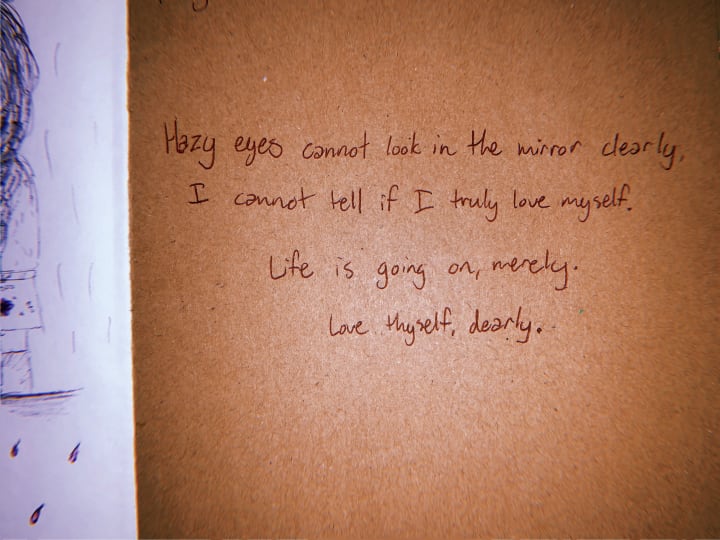 Hazy eyes cannot look in the mirror clearly,
I cannot tell if I truly love myself.
Life is going on, merely.
Love thyself, dearly.